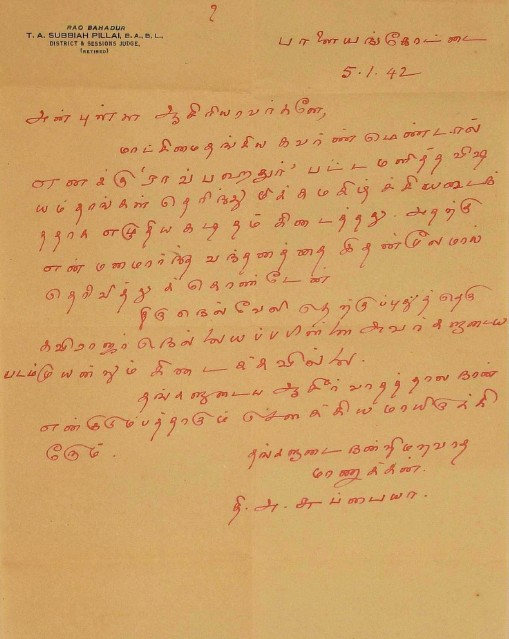 RAO BAHADUR
T. A. SUBBIAH PILLAI, B.A., B.L.,
DISTRICT & SESSIONS JUDGE,
(RETIRED)
பாளையங்கோட்டை
5.1.42
அன்புள்ள ஆசிரியரவர்களே,
மாட்சிமைதங்கிய கவர்ண்மெண்டால்
எனக்கு 'ராவ்பஹதூர்' பட்டமளித்த விஷ
யம் தாங்கள் தெரிந்து மிக்க மகிழ்ச்சியடைந்
ததாக எழுதிய கடிதம் கிடைத்தது. அதற்கு
என் மனமார்ந்த வந்தனத்தை இதன்மூலமாய்
தெரிவித்துக் கொண்டேன்
திருநெல்வேலி தெற்குப்புதுத் தெரு
கவிராஜர் நெல்லையப்பபிள்ளை அவர்களுடைய
படம் முயன்றும் கிடைக்கவில்லை.
தங்களுடைய ஆசீர்வாதத்தால் நான்
என் குடும்பத்தாரும் சௌக்கியமாயிருக்கி
றோம்.
தங்களுடை நன்றி மறவாத
மாணாக்கன்.
தி. அ. சுப்பையா.